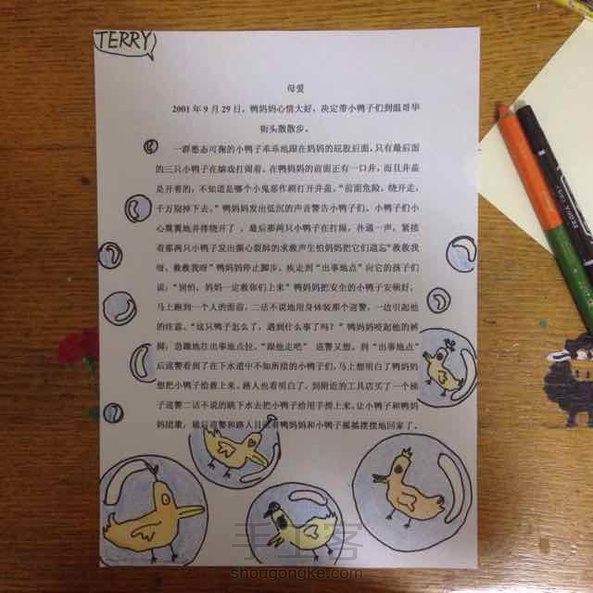 TERRY
母爱
2001年9月29日，鸭妈妈心情大好，决定带小鸭子们到温哥华
街头散散步。
一群憨态可掬的小鸭子乖乖地跟在妈妈的屁股后面，只有最后面
的三只小鸭子在嬉戏打闹着。在鸭妈妈的前面正有一口井，而且井盖
是开着的，不知道是哪个小鬼恶作剧打开井盖。“前面危险，绕开走，
千万别掉下去。”鸭妈妈发出低沉的声音警告小鸭子们。小鸭子们小
心翼翼地井排绕开了，最后那两只小鸭子在打闹，扑通一声，紧接
着那两只小鸭子发出撕心裂肺的求救声生怕妈妈把它们遗忘“救救我
呀，救救我呀”鸭妈妈停止脚步，疾走到“出事地点”向它的孩子们
说：“别怕，妈妈一定救你们上来”鸭妈妈把安全的小鸭子安顿好，
马上跑到一个人的面前，二话不说地用身体装那个巡警，一边引起他
的注意。“这只鸭子怎么了，遇到什么事了吗？”鸭妈妈咬起他的裤
脚，急躁地往出事地点拉。“跟他走吧”巡警又想。到“出事地点”
后巡警看到了在下水道中不知所措的小鸭子们，马上想到明白了鸭妈妈
想把小鸭子给救上来。路人也看明白了，到附近的工具店买了一个梯
子巡警二话不说的跳下水去把小鸭子给用手捞上来，让小鸭子和鸭妈
妈团聚，最后巡警和路人目送着鸭妈妈和小鸭子摇摇摆摆地回家了。
手工客
shougongke.com